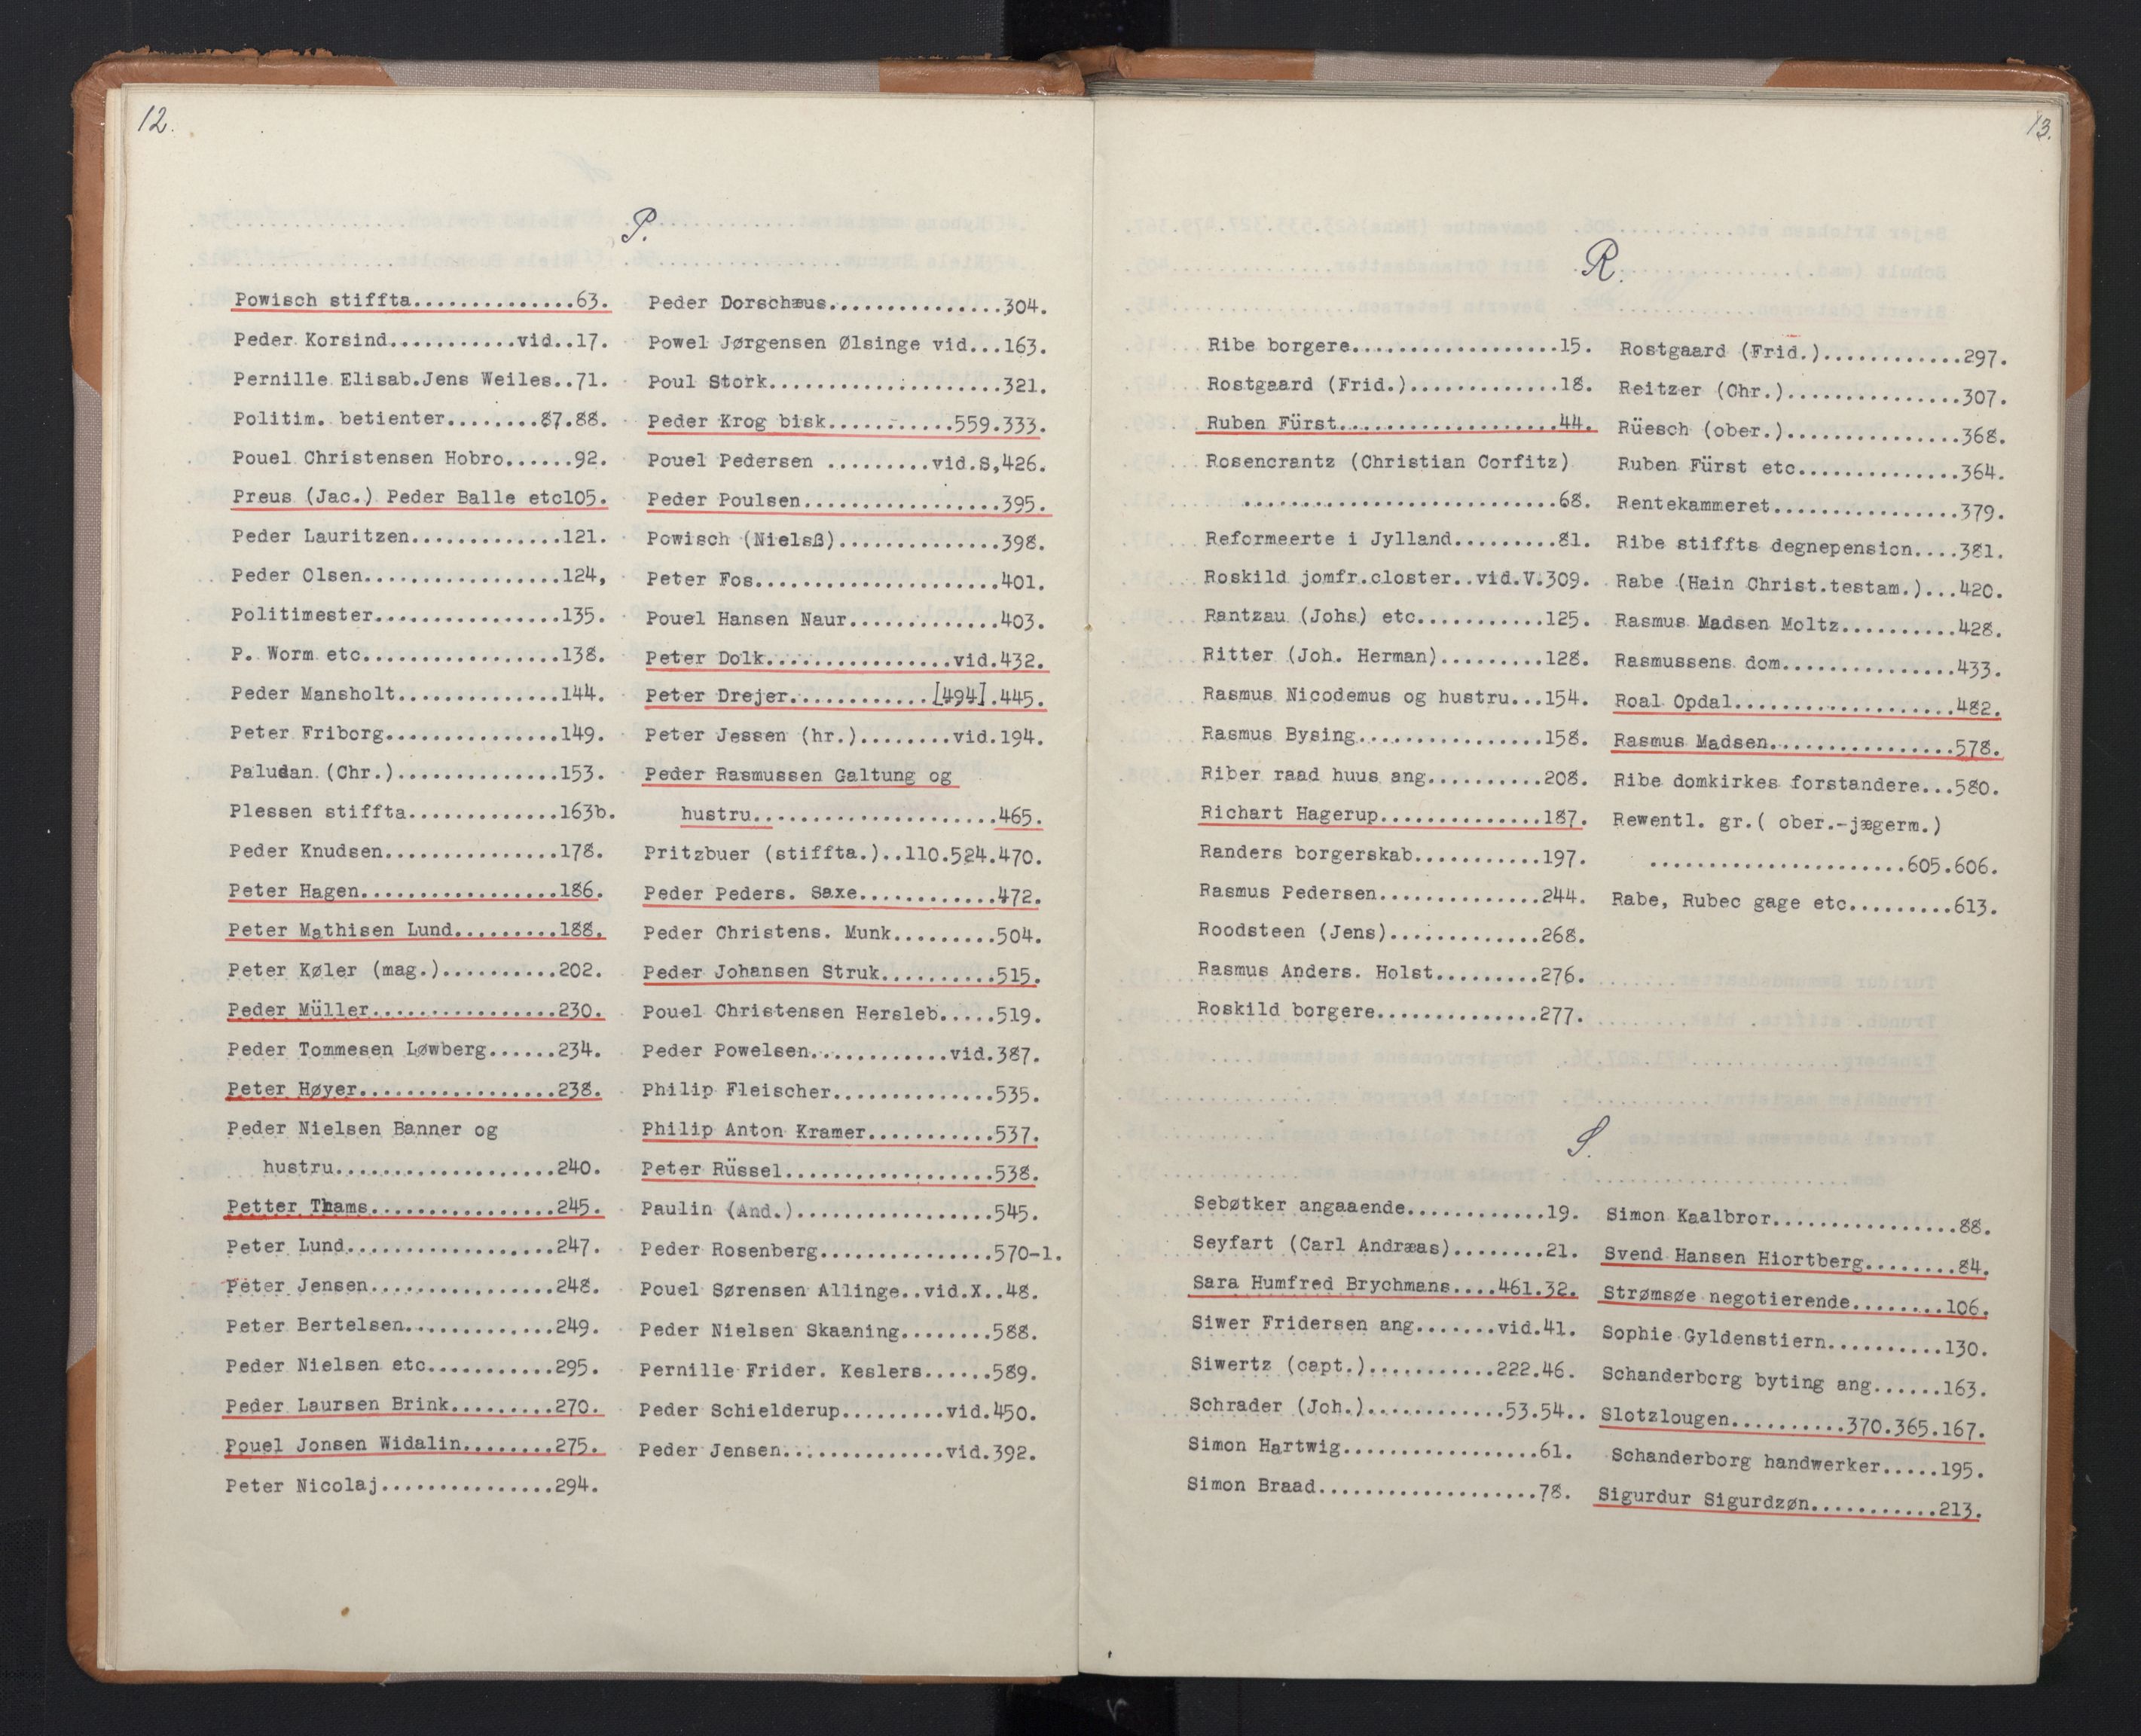 12.
P.
Powisch stiffta..............63.
Peder Korsind...........vid..17.
Pernille Elisab.Jens Weiles..71.
Politim. betienter........87.88.
Pouel Christensen Hobro......92.
Preus (Jac.) Peder Balle etc105.
Peder Lauritzen.............121.
Peder Olsen.................124,
Politimester................135.
P. Worm etc.................138.
Peder Mansholt..............144.
Peter Friborg...............149.
Paludan (Chr.)..............153.
Plessen stiffta.............163b.
Peder Knudsen...............178.
Peter Hagen.................186.
Peter Mathisen Lund.........188.
Peter Køler (mag.)..........202.
Peder Müller................230.
Peder Tommesen Løwberg......234.
Peter Høyer.................238.
Peder Nielsen Banner og
hustru...................240.
Petter Thams................245.
Peter Lund..................247.
Peter Jensen................248.
Peter Bertelsen.............249.
Peder Nielsen etc...........295.
Peder Laursen Brink.........270.
Pouel Jonsen Widalin........275.
Peter Nicolaj...............294.
Peder Dorschæus...............304.
Powel Jørgensen Ølsinge vid...163.
Poul Stork....................321.
Peder Krog bisk...........559.333.
Pouel Pedersen .........vid.S,426.
Peder Poulsen.................395.
Powisch (Nielsß)..............398.
Peter Fos.....................401.
Pouel Hansen Naur.............403.
Peter Dolk................vid.432.
Peter Drejer.............[494].445.
Peter Jessen (hr.)........vid.194.
Peder Rasmussen Galtung og
hustru.....................465.
Pritzbuer (stiffta.)..110.524.470.
Peder Peders. Saxe............472.
Peder Christens. Munk.........504.
Peder Johansen Struk..........515.
Pouel Christensen Hersleb.....519.
Peder Powelsen............vid.387.
Philip Fleischer..............535.
Philip Anton Kramer...........537.
Peter Rüssel..................538.
Paulin (And.).................545.
Peder Rosenberg...............570-1.
Pouel Sørensen Allinge..vid.X..48.
Peder Nielsen Skaaning........588.
Pernille Frider. Keslers......589.
Peder Schielderup.........vid.450.
Peder Jensen..............vid.392.
13.
R.
Ribe borgere..................15.
Rostgaard (Frid.).............18.
Ruben Fürst...................44.
Rosencrantz (Christian Corfitz)
...........................68.
Reformeerte i Jylland.........81.
Roskild jomfr.closter..vid.V.309.
Rantzau (Johs) etc...........125.
Ritter (Joh. Herman).........128.
Rasmus Nicodemus og hustru...154.
Rasmus Bysing................158.
Riber raad huus ang..........208.
Richart Hagerup..............187.
Randers borgerskab...........197.
Rasmus Pedersen..............244.
Roodsteen (Jens).............268.
Rasmus Anders. Holst.........276.
Roskild borgere..............277.
Rostgaard (Frid.)............297.
Reitzer (Chr.)...............307.
Rüesch (ober.)...............368.
Ruben Fürst etc..............364.
Rentekammeret................379.
Ribe stiffts degnepension....381.
Rabe (Hain Christ.testam.)...420.
Rasmus Madsen Moltz..........428.
Rasmussens dom...............433.
Roal Opdal...................482.
Rasmus Madsen................578.
Ribe domkirkes forstandere...580.
Rewentl. gr.( ober.-jægerm.)
.......................605.606.
Rabe, Rubec gage etc.........613.
S.
Sebøtker angaaende............19.
Seyfart (Carl Andræas)........21.
Sara Humfred Brychmans....461.32.
Siwer Fridersen ang.......vid.41.
Siwertz (capt.)...........222.46.
Schrader (Joh.)............53.54..
Simon Hartwig.................61.
Simon Braad...................78.
Simon Kaalbror................88.
Svend Hansen Hiortberg........84.
Strømsøe negotierende........106.
Sophie Gyldenstiern..........130.
Schanderborg byting ang......163.
Slotzlougen..........370.365.167.
Schanderborg handwerker.....195.
Sigurdur Sigurdzøn...........213.